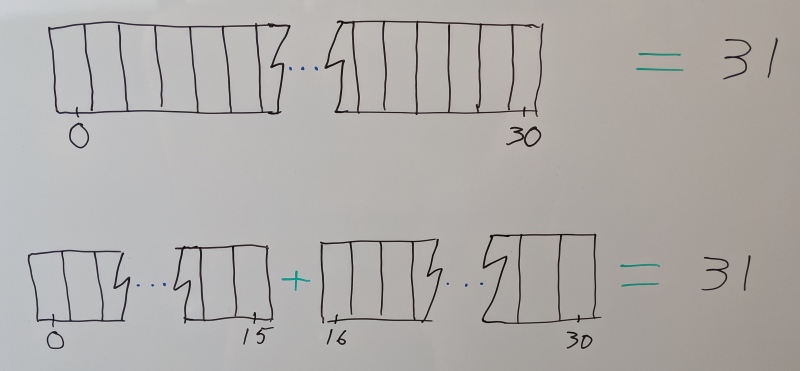 ... = 31
0 30
... + ... = 31
0 15 16 30